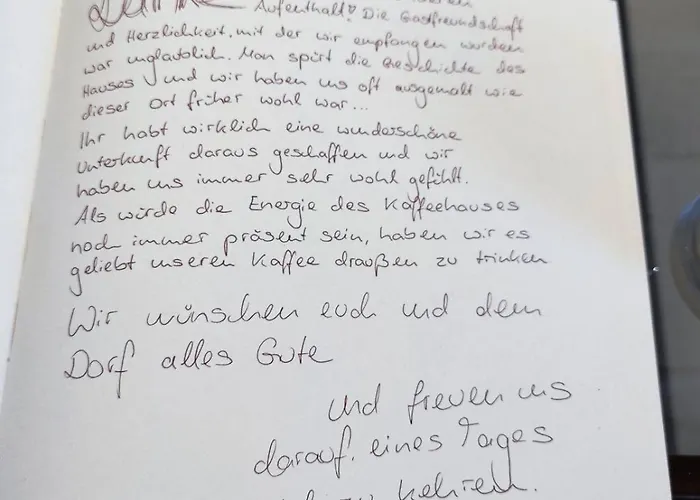 Aufenthalt! Die Gastfreundschaft
und Herzlichkeit, mit der wir empfangen wurden
war unglaublich. Man spürt die Geschichte des
Hauses und wir haben uns oft ausgemalt wie
dieser Ort früher wohl war...
Ihr habt wirklich eine wunderschöne
Unterkunft daraus geschaffen und wir
haben uns immer sehr wohl gefühlt.
Als würde die Energie des Kaffeehauses
noch immer präsent sein, haben wir es
geliebt unseren Kaffee draußen zu trinken
Wir wünschen euch und dem
Dorf alles Gute
und freuen uns
darauf, eines Tages
kehren.